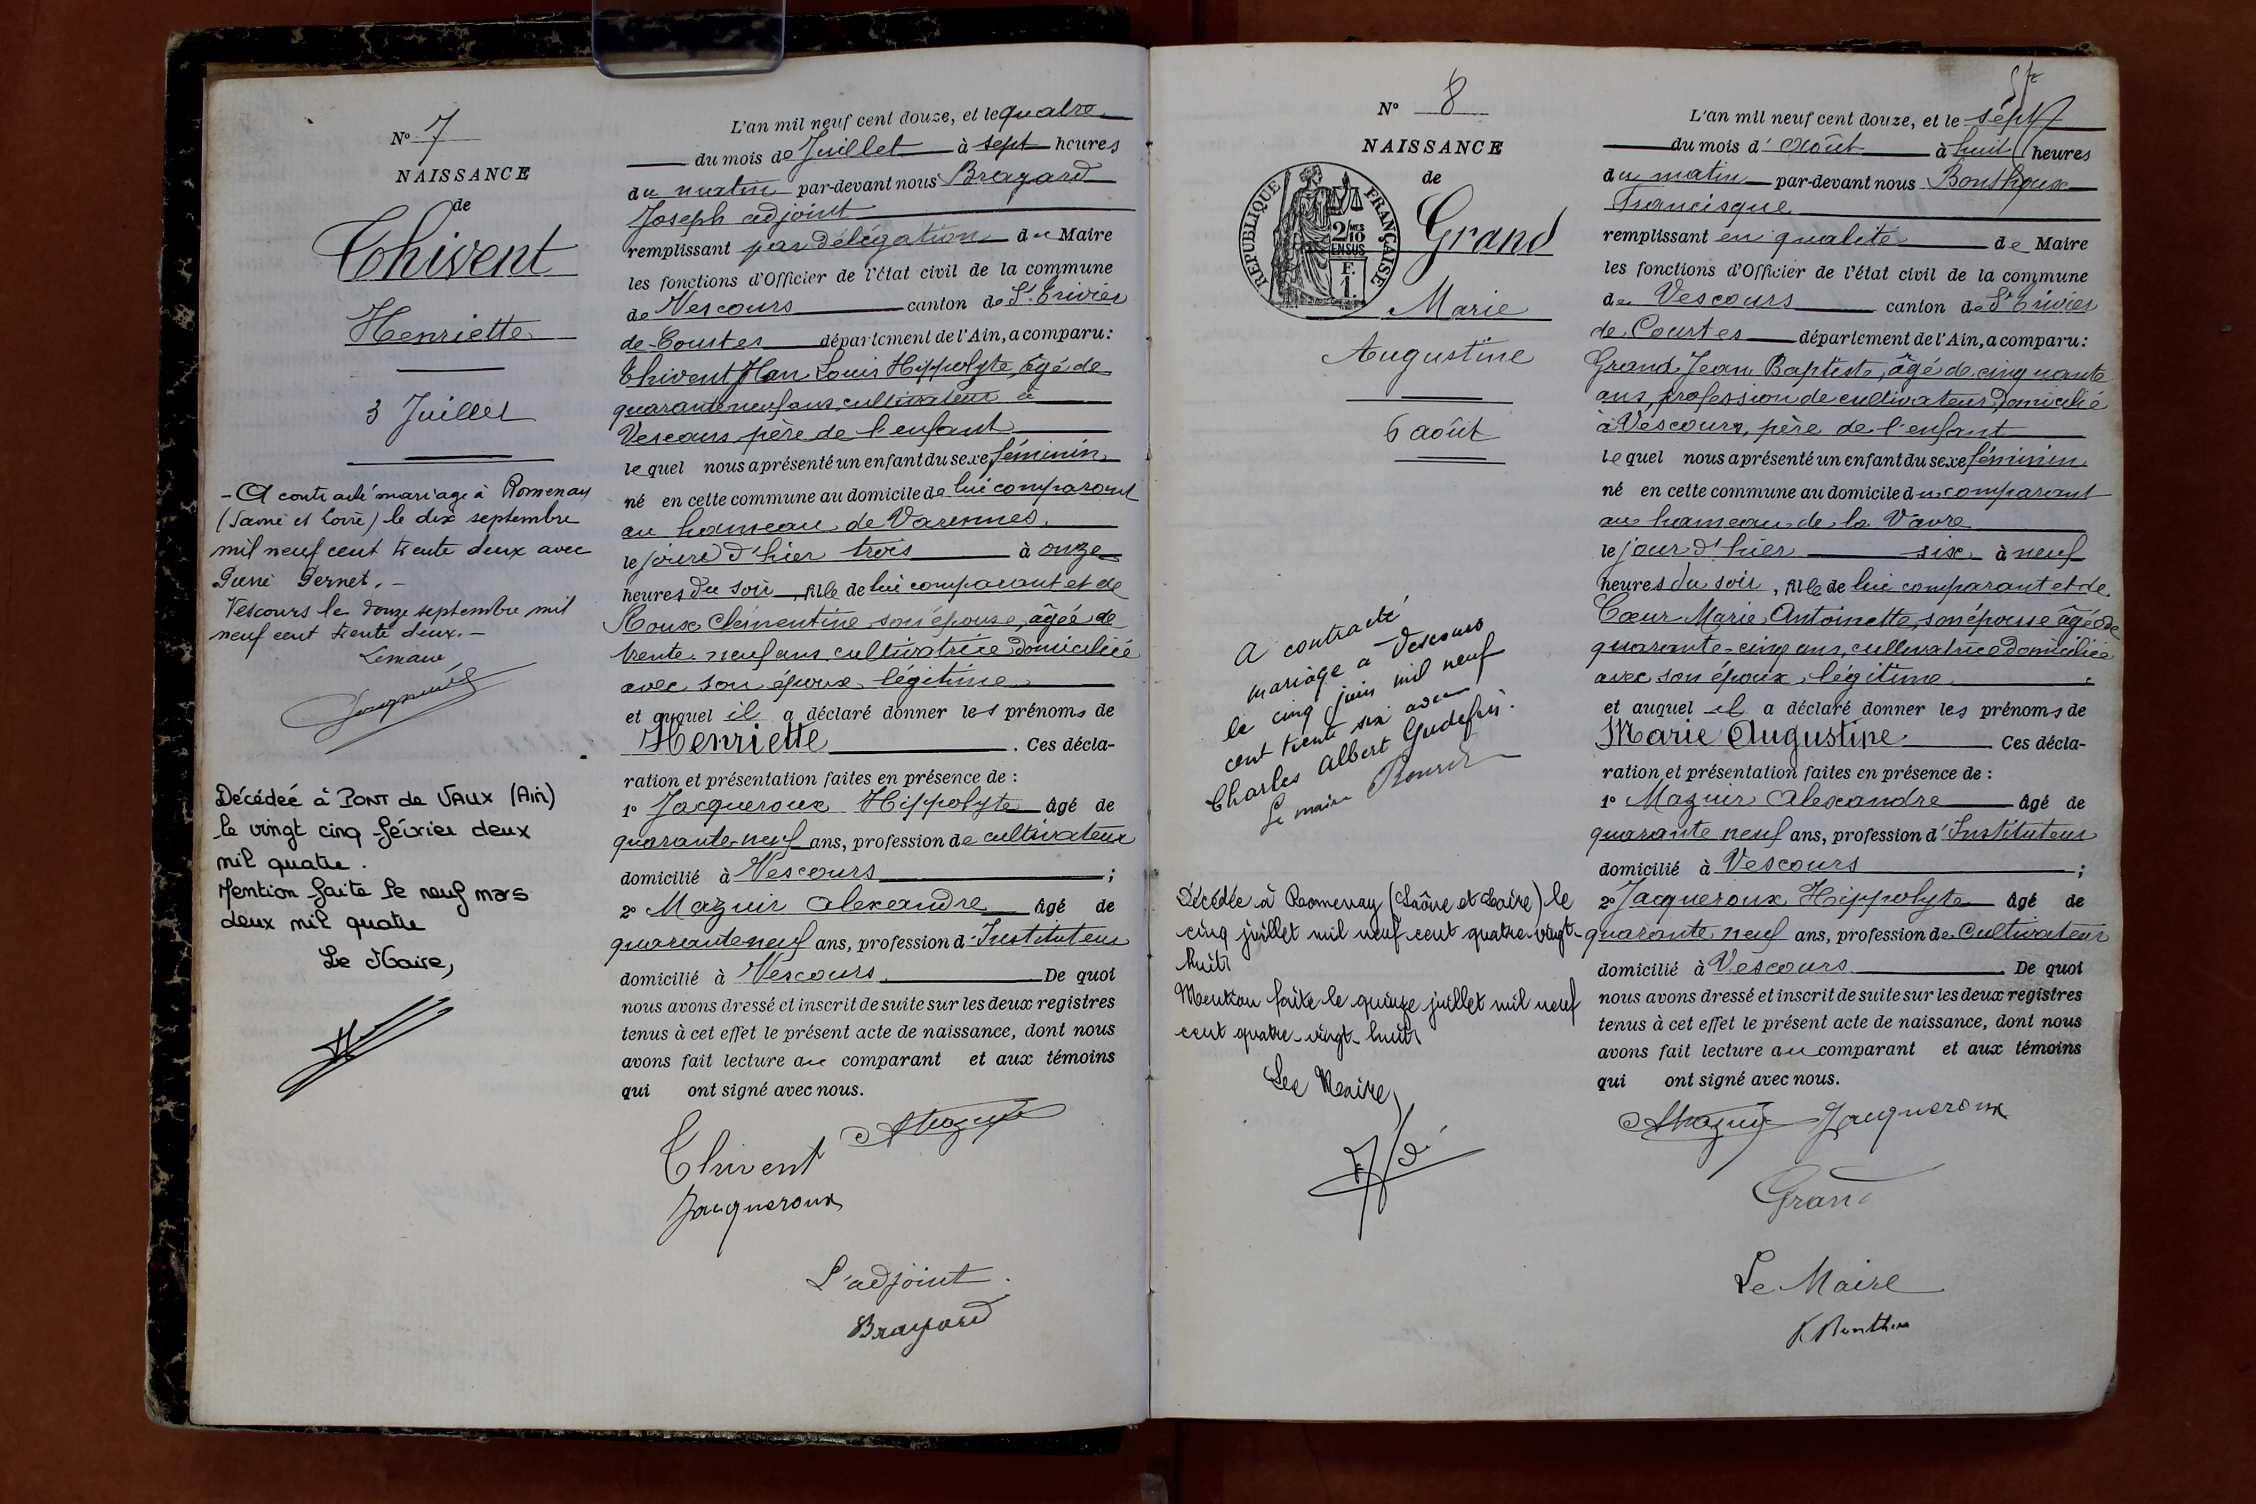 N° 7
NAISSANCE
de
Thivent
Henriette
3 Juillet
- A contracté mariage à Romenay
(Saône et Loire) le dix septembre
mil neuf cent trente deux avec
Pernet. -
Vescours le douze septembre mil
neuf cent trente deux. -
Le maire
Décédeé à PONT de VAUX (Ain)
le vingt cinq février deux
mil quatre.
Mention faite le neuf mars
deux mil quatre
Le Maire,
L'an mil neuf cent douze, et le quatre
du mois de Juillet à sept heures
du matin par-devant nous Brayard
Joseph adjoint
remplissant par délégation du Maire
les fonctions d'Officier de l'état civil de la commune
de Vescours canton de St Trivier
de Courtes département de l'Ain, a comparu:
Thivent Jean Louis Hippolyte, âgé de
quarante neuf ans, cultivateur à
Vescours père de l'enfant
le quel nous a présenté un enfant du sexe féminin,
né en cette commune au domicile de lui comparant
au hameau de Varennes,
le jour d'hier trois à onze
heures du soir, fille de lui comparant et de
Roux Clémentine son épouse, âgée de
trente-neuf ans, cultivatrice domiciliée
avec son époux légitime
et auquel il a déclaré donner les prénoms de
Henriette. Ces décla-
ration et présentation faites en présence de :
1° Jacqueroux Hippolyte âgé de
quarante-neuf ans, profession de cultivateur
domicilié à Vescours ;
2° Mazuir Alexandre âgé de
quarante neuf ans, profession d'Instituteur
domicilié à Vescours. De quoi
nous avons dressé et inscrit de suite sur les deux registres
tenus à cet effet le présent acte de naissance, dont nous
avons fait lecture au comparant et aux témoins
qui ont signé avec nous.
Thivent AMazuir
Jacqueroux
L'adjoint
Brayard
N° 8
NAISSANCE
de
RÉPUBLIQUE FRANÇAISE
2/10 MES
EN SUS
F.
1.
Grand
Marie
Augustine
6 août
A contracté
mariage à Vescours
le cinq juin mil neuf
cent trente six avec
Charles Albert Gudefin.
Le maire
Décédée à Romenay (Saône et Loire) le
cinq juillet mil neuf cent quatre-vingt-
huit
Mention faite le quinze juillet mil neuf
cent quatre-vingt-huit
Le Maire,
L'an mil neuf cent douze, et le sept
du mois d'août à huit heures
du matin par-devant nous Bonthoux
Francisque
remplissant en qualité de Maire
les fonctions d'Officier de l'état civil de la commune
de Vescours canton de St Trivier
de Courtes département de l'Ain, a comparu:
Grand Jean Baptiste, âgé de cinquante
ans, profession de cultivateur domicilié
à Vescours, père de l'enfant
le quel nous a présenté un enfant du sexe féminin
né en cette commune au domicile du comparant
au hameau de la Vavre
le jour d'hier six à neuf
heures du soir, fille de lui comparant et de
Cœur Marie Antoinette, son épouse âgée de
quarante-cinq ans, cultivatrice domiciliée
avec son époux, légitime
et auquel il a déclaré donner les prénoms de
Marie Augustine. Ces décla-
ration et présentation faites en présence de :
1° Mazuir Alexandre âgé de
quarante neuf ans, profession d'Instituteur
domicilié à Vescours ;
2° Jacqueroux Hippolyte âgé de
quarante neuf ans, profession de Cultivateur
domicilié à Vescours. De quoi
nous avons dressé et inscrit de suite sur les deux registres
tenus à cet effet le présent acte de naissance, dont nous
avons fait lecture au comparant et aux témoins
qui ont signé avec nous.
AMazuir Jacqueroux
Grand
Le Maire
F Bonthoux